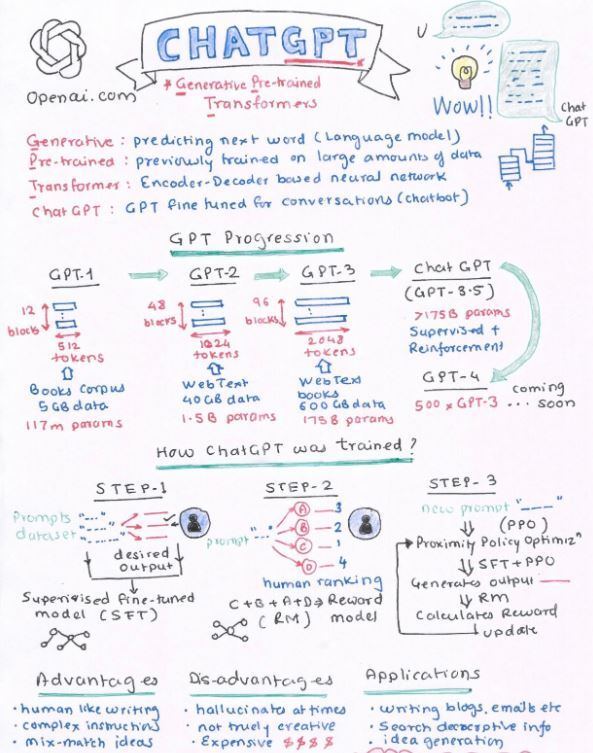 CHATGPT
Openai.com
* Generative Pre-trained
Transformers
U
Wow!!
Chat
GPT
Generative : predicting next word (Language model)
Pre-trained : previously trained on large amounts of data
Transformer : Encoder-Decoder based neural network
Chat GPT : GPT fine tuned for conversations (chatbot)
GPT Progression
GPT-1
GPT-2
GPT-3
Chat GPT
(GPT-3.5)
12
blocks
512
tokens
Books Corpus
5GB data
117m params
48
blocks
1024
tokens
WebText
40GB data
1.5B params
96
blocks
2048
tokens
WebText
books
600GB data
175B params
>175B params
Supervised +
Reinforcement
GPT-4
500 x GPT-3 ... coming soon
How ChatGPT was trained?
STEP-1
Prompts
dataset
desired
output
Supervised fine-tuned
model (SFT)
STEP-2
prompt
A 3
B 2
C 1
D 4
human ranking
C+B+A+D → Reward
(RM) model
STEP-3
new prompt "___"
(PPO)
Proximity Policy Optimizn
SFT+PPO
Generates output
RM
Calculates Reward
update
Advantages
• human like writing
• complex instructns
• mix-match ideas
Dis-advantages
• hallucinates at times
• not truely creative
• Expensive $$$$
Applications
• writing blogs, emails etc
• Search descriptive info
• idea generation